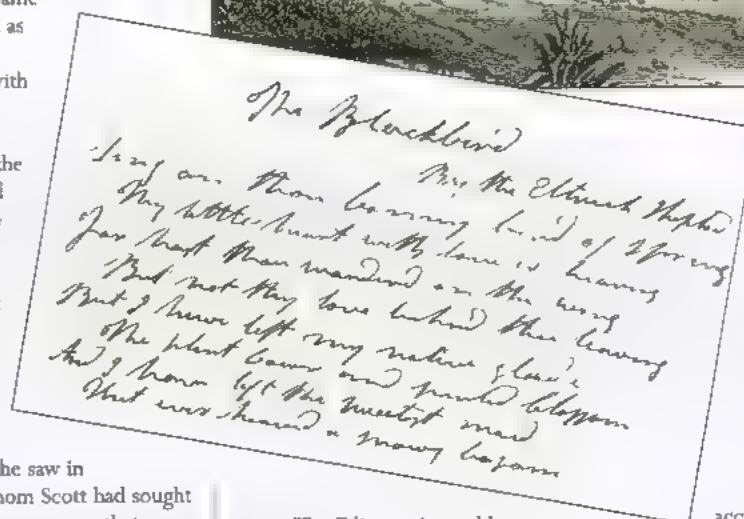 as
with
the
The Blackbird
By the Ettrick Shepherd
Sing on thou bonny bird of Spring
Thy little heart with love is heaving
Far hast thou wander'd on the wing
But not thy love behind thee leaving
But I have left my native glade
The blent and purpled blossom
And I have left the sweetest maid
That ever heaved a snowy bosom
he saw in
nom Scott had sought